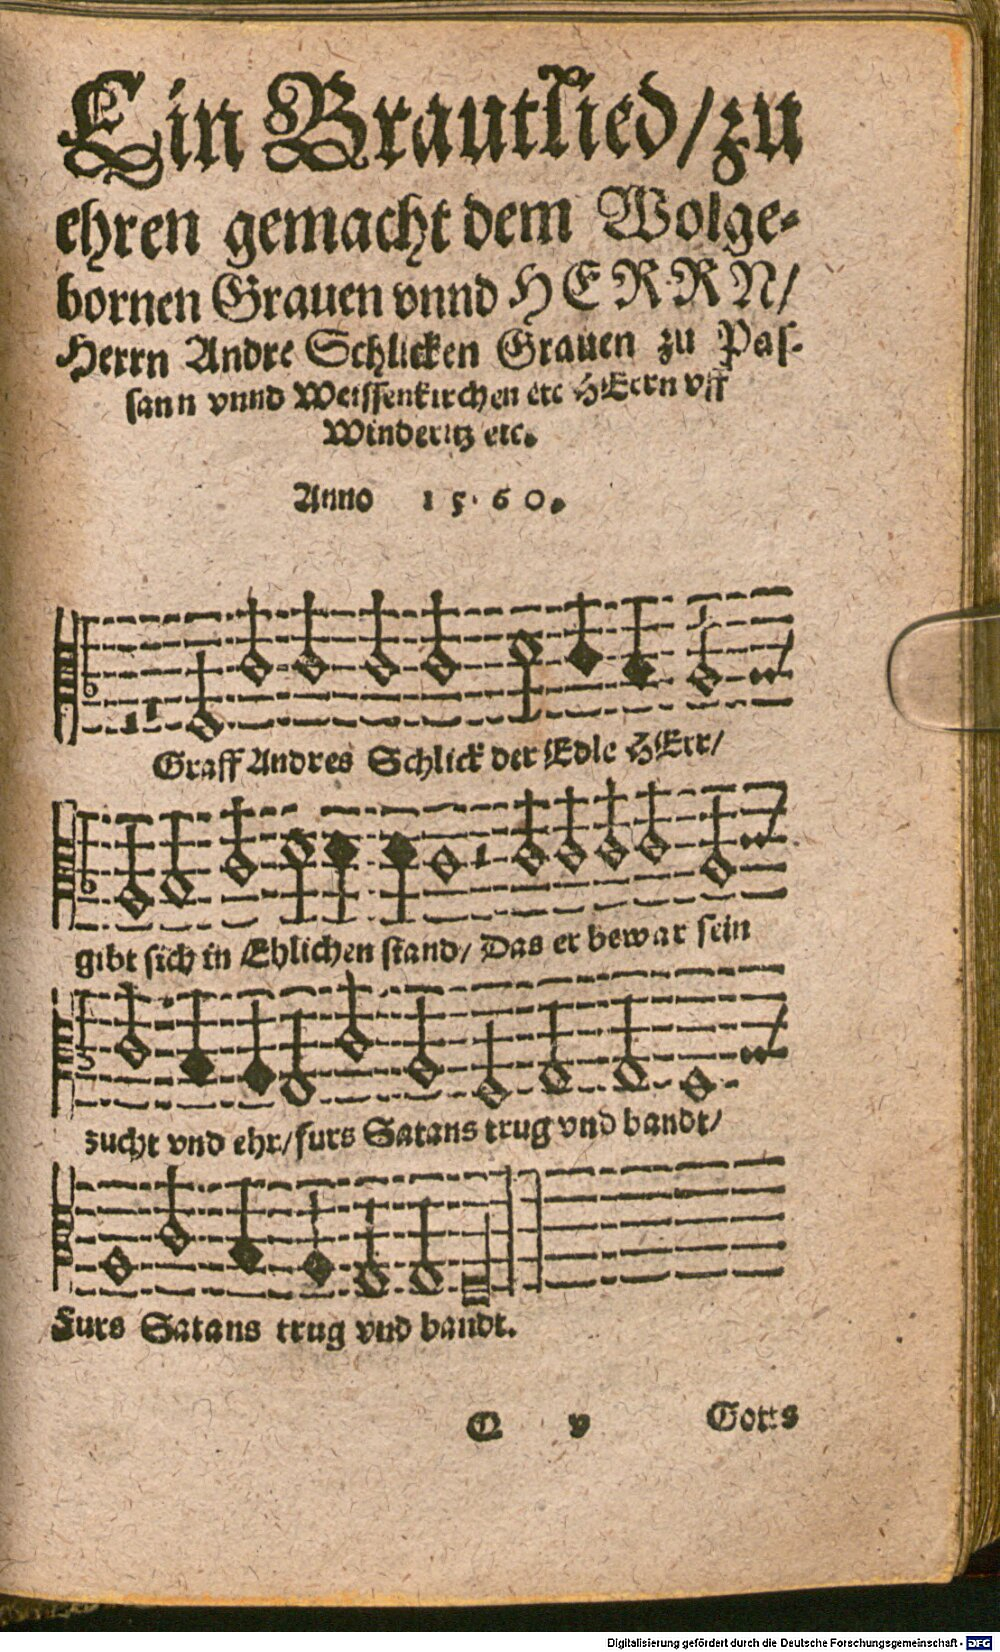 Ein Brautlied/zu
ehren gemacht dem Wolge-
bornen Grauen vnnd HERRN/
Herrn Andre Schlicken Grauen zu Pas-
sann vnnd Weissenkirchen etc HErrn vff
Winderitz etc.
Anno 15.60.
Graff Andres Schlick der Edle HErr/
gibt sich in Ehlichen stand/ Das er bewar sein
zucht vnd ehr/furs Satans trug vnd bandt/
Furs Satans trug vnd bandt.
Q v Gotts
Digitalisierung gefördert durch die Deutsche Forschungsgemeinschaft - DFG